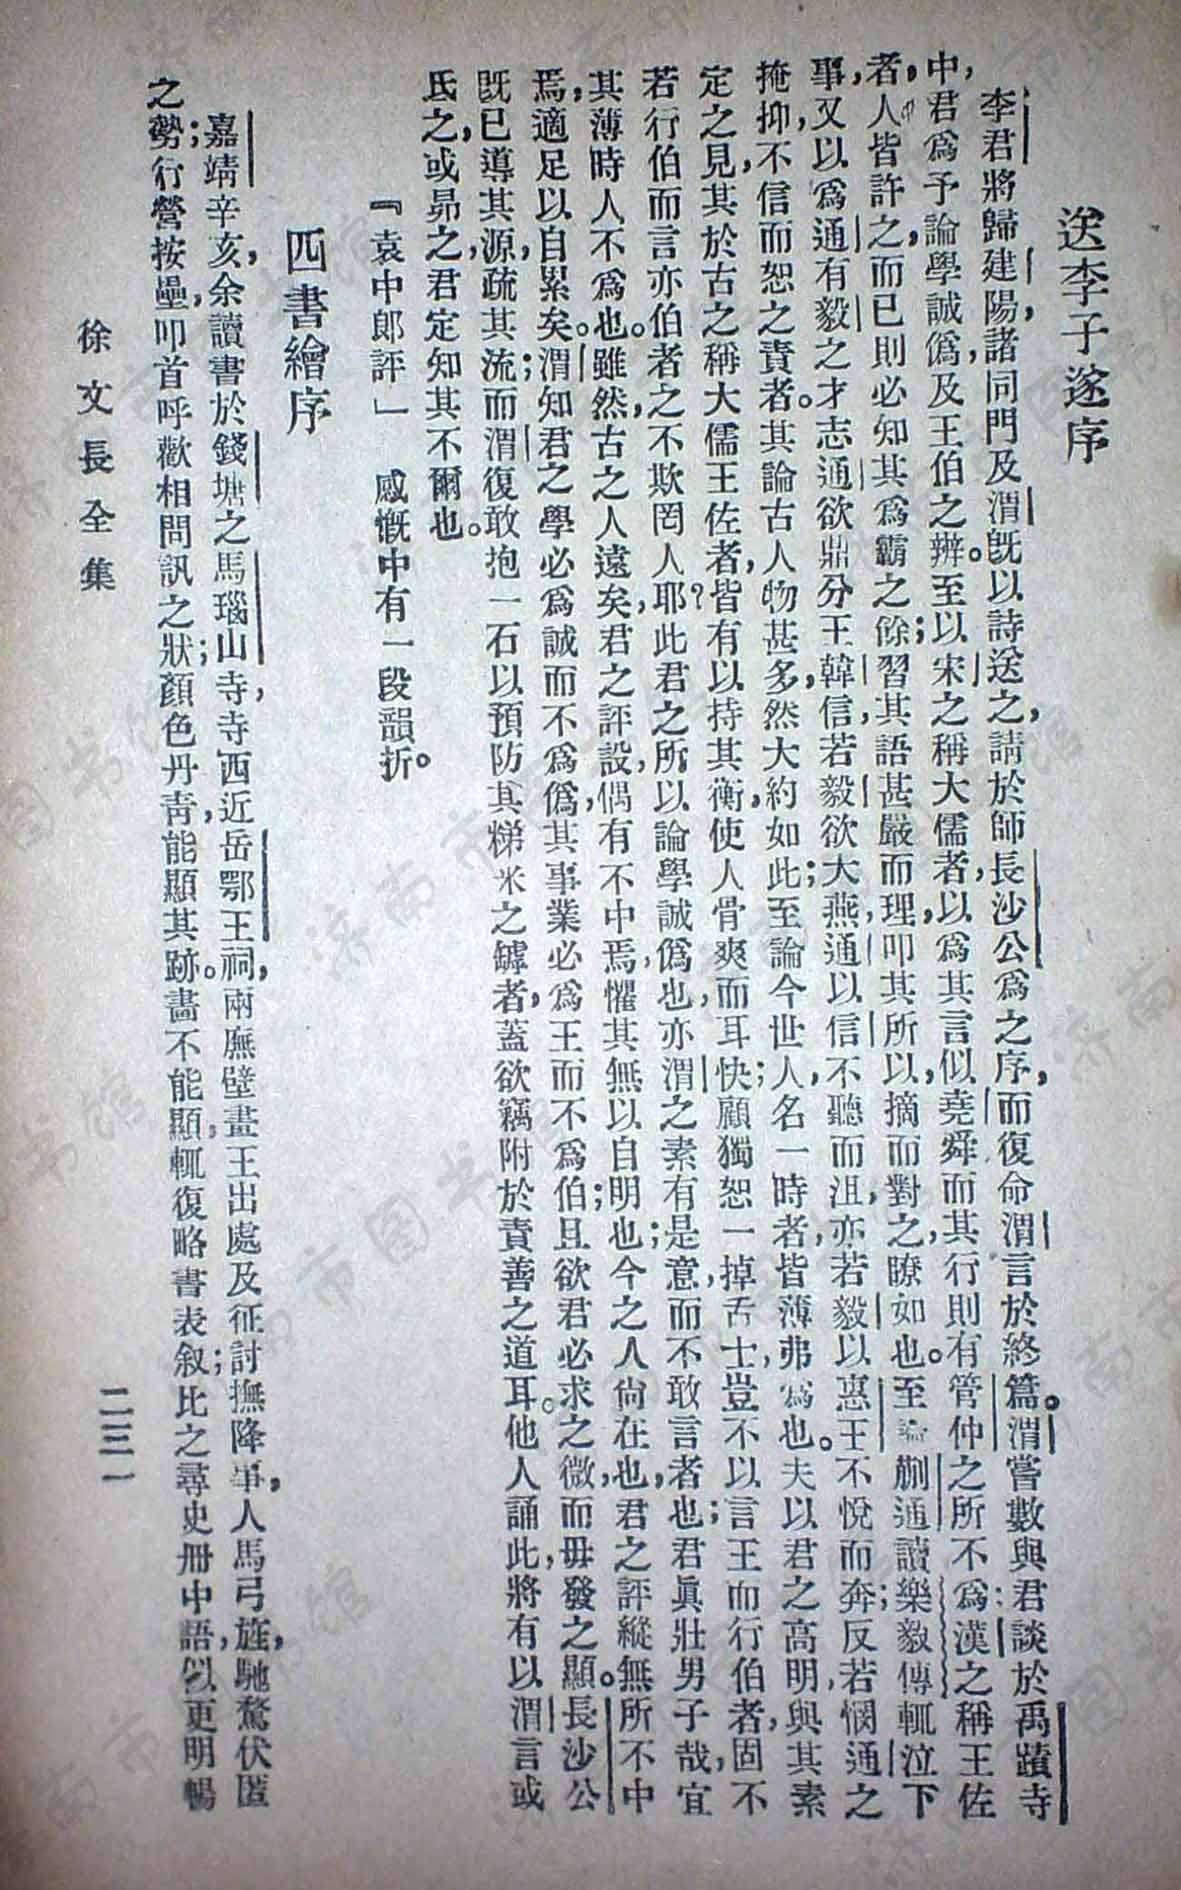 送李子遂序
李君將歸建陽,諸同門及渭既以詩送之,請於師長沙公爲之序,而復命渭言於終篇。渭嘗數與君談於禹蹟寺
中,君爲予論學誠僞,及王伯之辨。至以宋之稱大儒者,以爲其言似堯舜,而其行則有管仲之所不爲;漢之稱王佐
者,人皆許之,而已則必知其爲霸之餘;習其語甚嚴而理,叩其所以,摘而對之,瞭如也。至論蒯通讀樂毅傳,輒泣下
事,又以爲通有毅之才志,通欲鼎分王韓信,若毅欲大燕,通以信不聽而沮,亦若毅以惠王不悅而奔;反若憫通之
掩抑,不信而恕之責者。其論古人物甚多,然大約如此;至論今世人,名一時者,皆薄弗爲也。夫以君之高明,與其素
定之見,其於古之稱大儒王佐者,皆有以持其衡,使人骨爽而耳快;顧獨恕一掉舌士,豈不以言王而行伯者,固不
若行伯而言亦伯者之不欺罔人耶?此君之所以論學誠僞也,亦渭之素有是意,而不敢言者也;君眞壯男子哉,宜
其薄時人不爲也。雖然,古之人遠矣,君之評設,偶有不中焉,懼其無以自明也;今之人尙在也,君之評縱無所不中
焉,適足以自累矣。渭知君之學必爲誠而不爲僞,其事業必爲王而不爲伯;且欲君必求之微,而毋發之顯。長沙公
既已導其源,疏其流;而渭復敢抱一石以預防其稊米之罅者,蓋欲竊附於責善之道耳。他人誦此,將有以渭言或
氐之,或昴之,君定知其不爾也。
『袁中郞評』 感慨中有一段韻折。
四書繪序
嘉靖辛亥,余讀書於錢塘之馬瑙山寺,寺西近岳鄂王祠,兩廡壁畫王出處及征討撫降事,人馬弓旌,馳騖伏匿
之勢;行營按壘,叩首呼歡相問訊之狀;顏色丹靑,能顯其跡。畫不能顯,輒復略書表叙;比之尋史册中語,似更明暢
徐文長全集
二三一